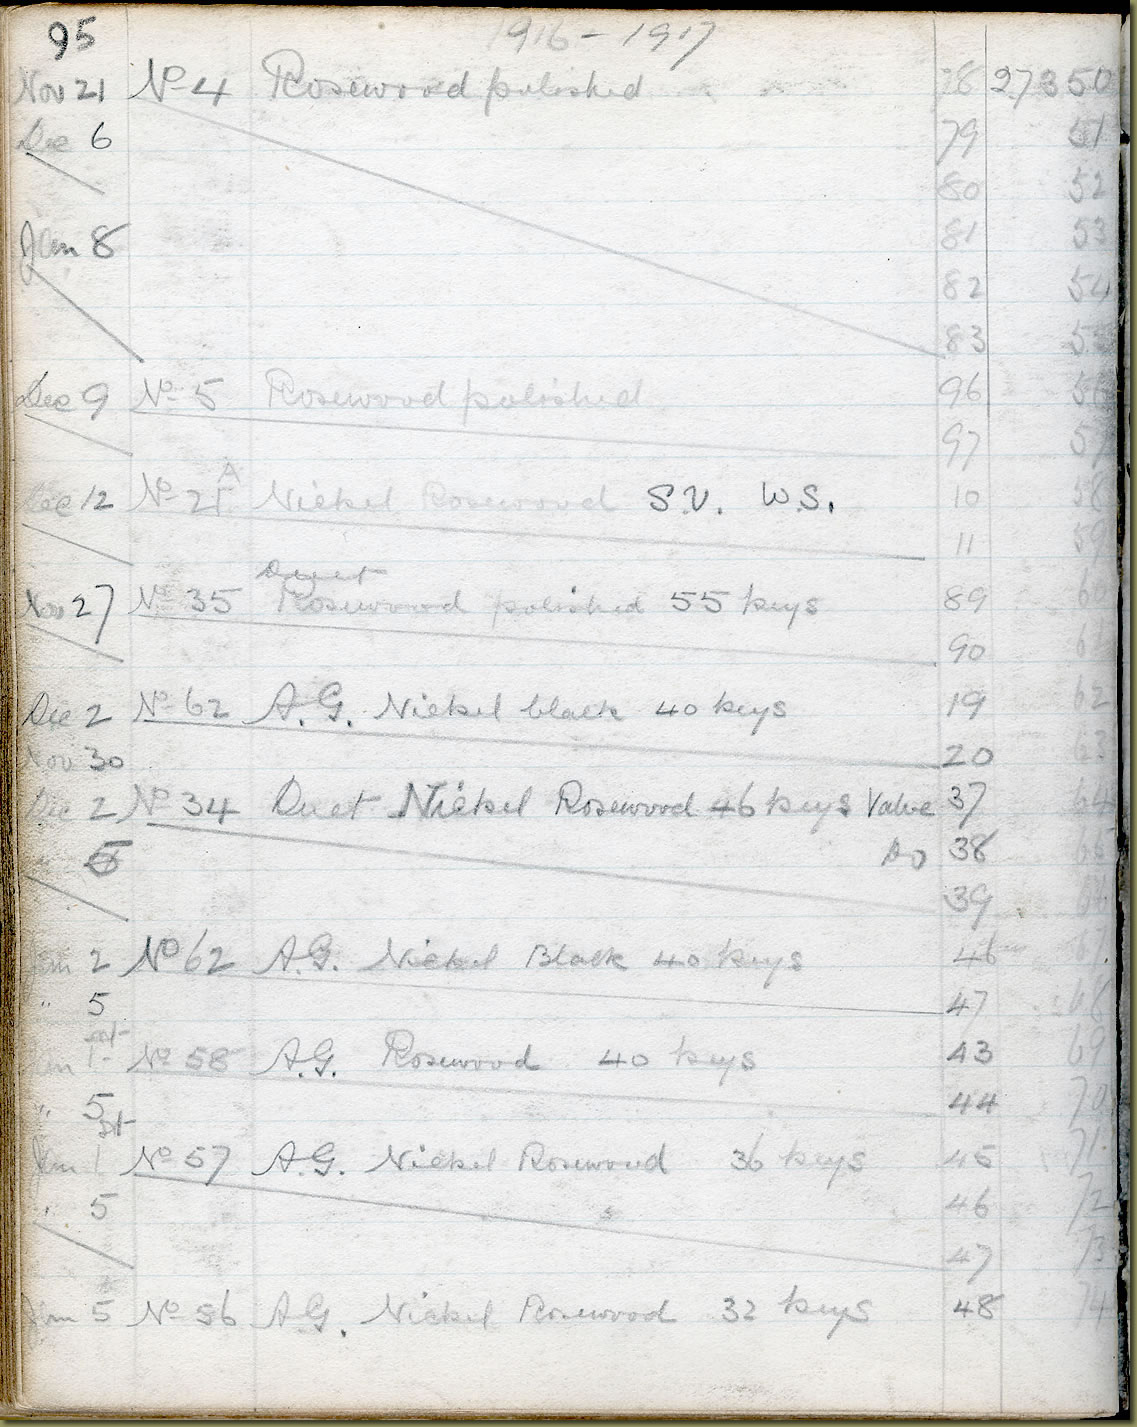 95 1916 - 1917
Nov 21 No 4 Rosewood polished 78 27350
Dec 6 79 51
80 52
Jan 8 81 53
82 54
83 55
Dec 9 No 5 Rosewood polished 96 56
97 57
Dec 12 No 21 A Nickel Rosewood S.V. W.S. 10 58
11 59
Duet
Nov 27 No 35 Rosewood polished 55 keys 89 60
90 61
Dec 2 No 62 A.G. Nickel black 40 keys 19 62
Nov 30 20 63
Dec 2 No 34 Duet Nickel Rosewood 46 keys Valve 37 64
" 5 Do 38 65
39 66
Jan 2 No 62 A.G. Nickel Black 40 keys 46 67
" 5 47 68
Jan 1st No 58 A.G. Rosewood 40 keys 43 69
" 5 44 70
Jan 1st No 57 A.G. Nickel Rosewood 36 keys 45 71
" 5 46 72
47 73
Jan 5 No 56 A.G. Nickel Rosewood 32 keys 48 74